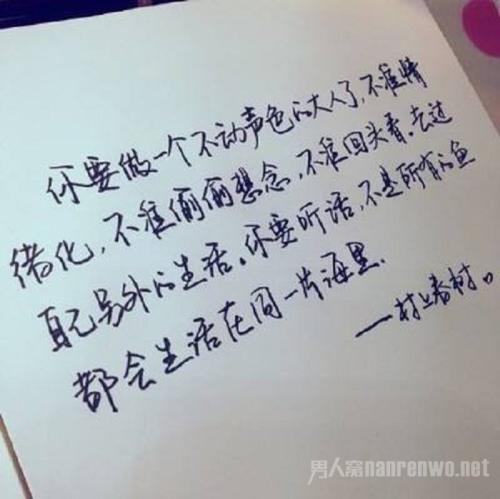 你要做一个不动声色的大人了,不准情
绪化,不准偷偷想念,不准回头看.去过
自己另外的生活。你要听话,不是所有的鱼
都会生活在同一片海里.
——村上春村。
男人窝nanrenwo.net